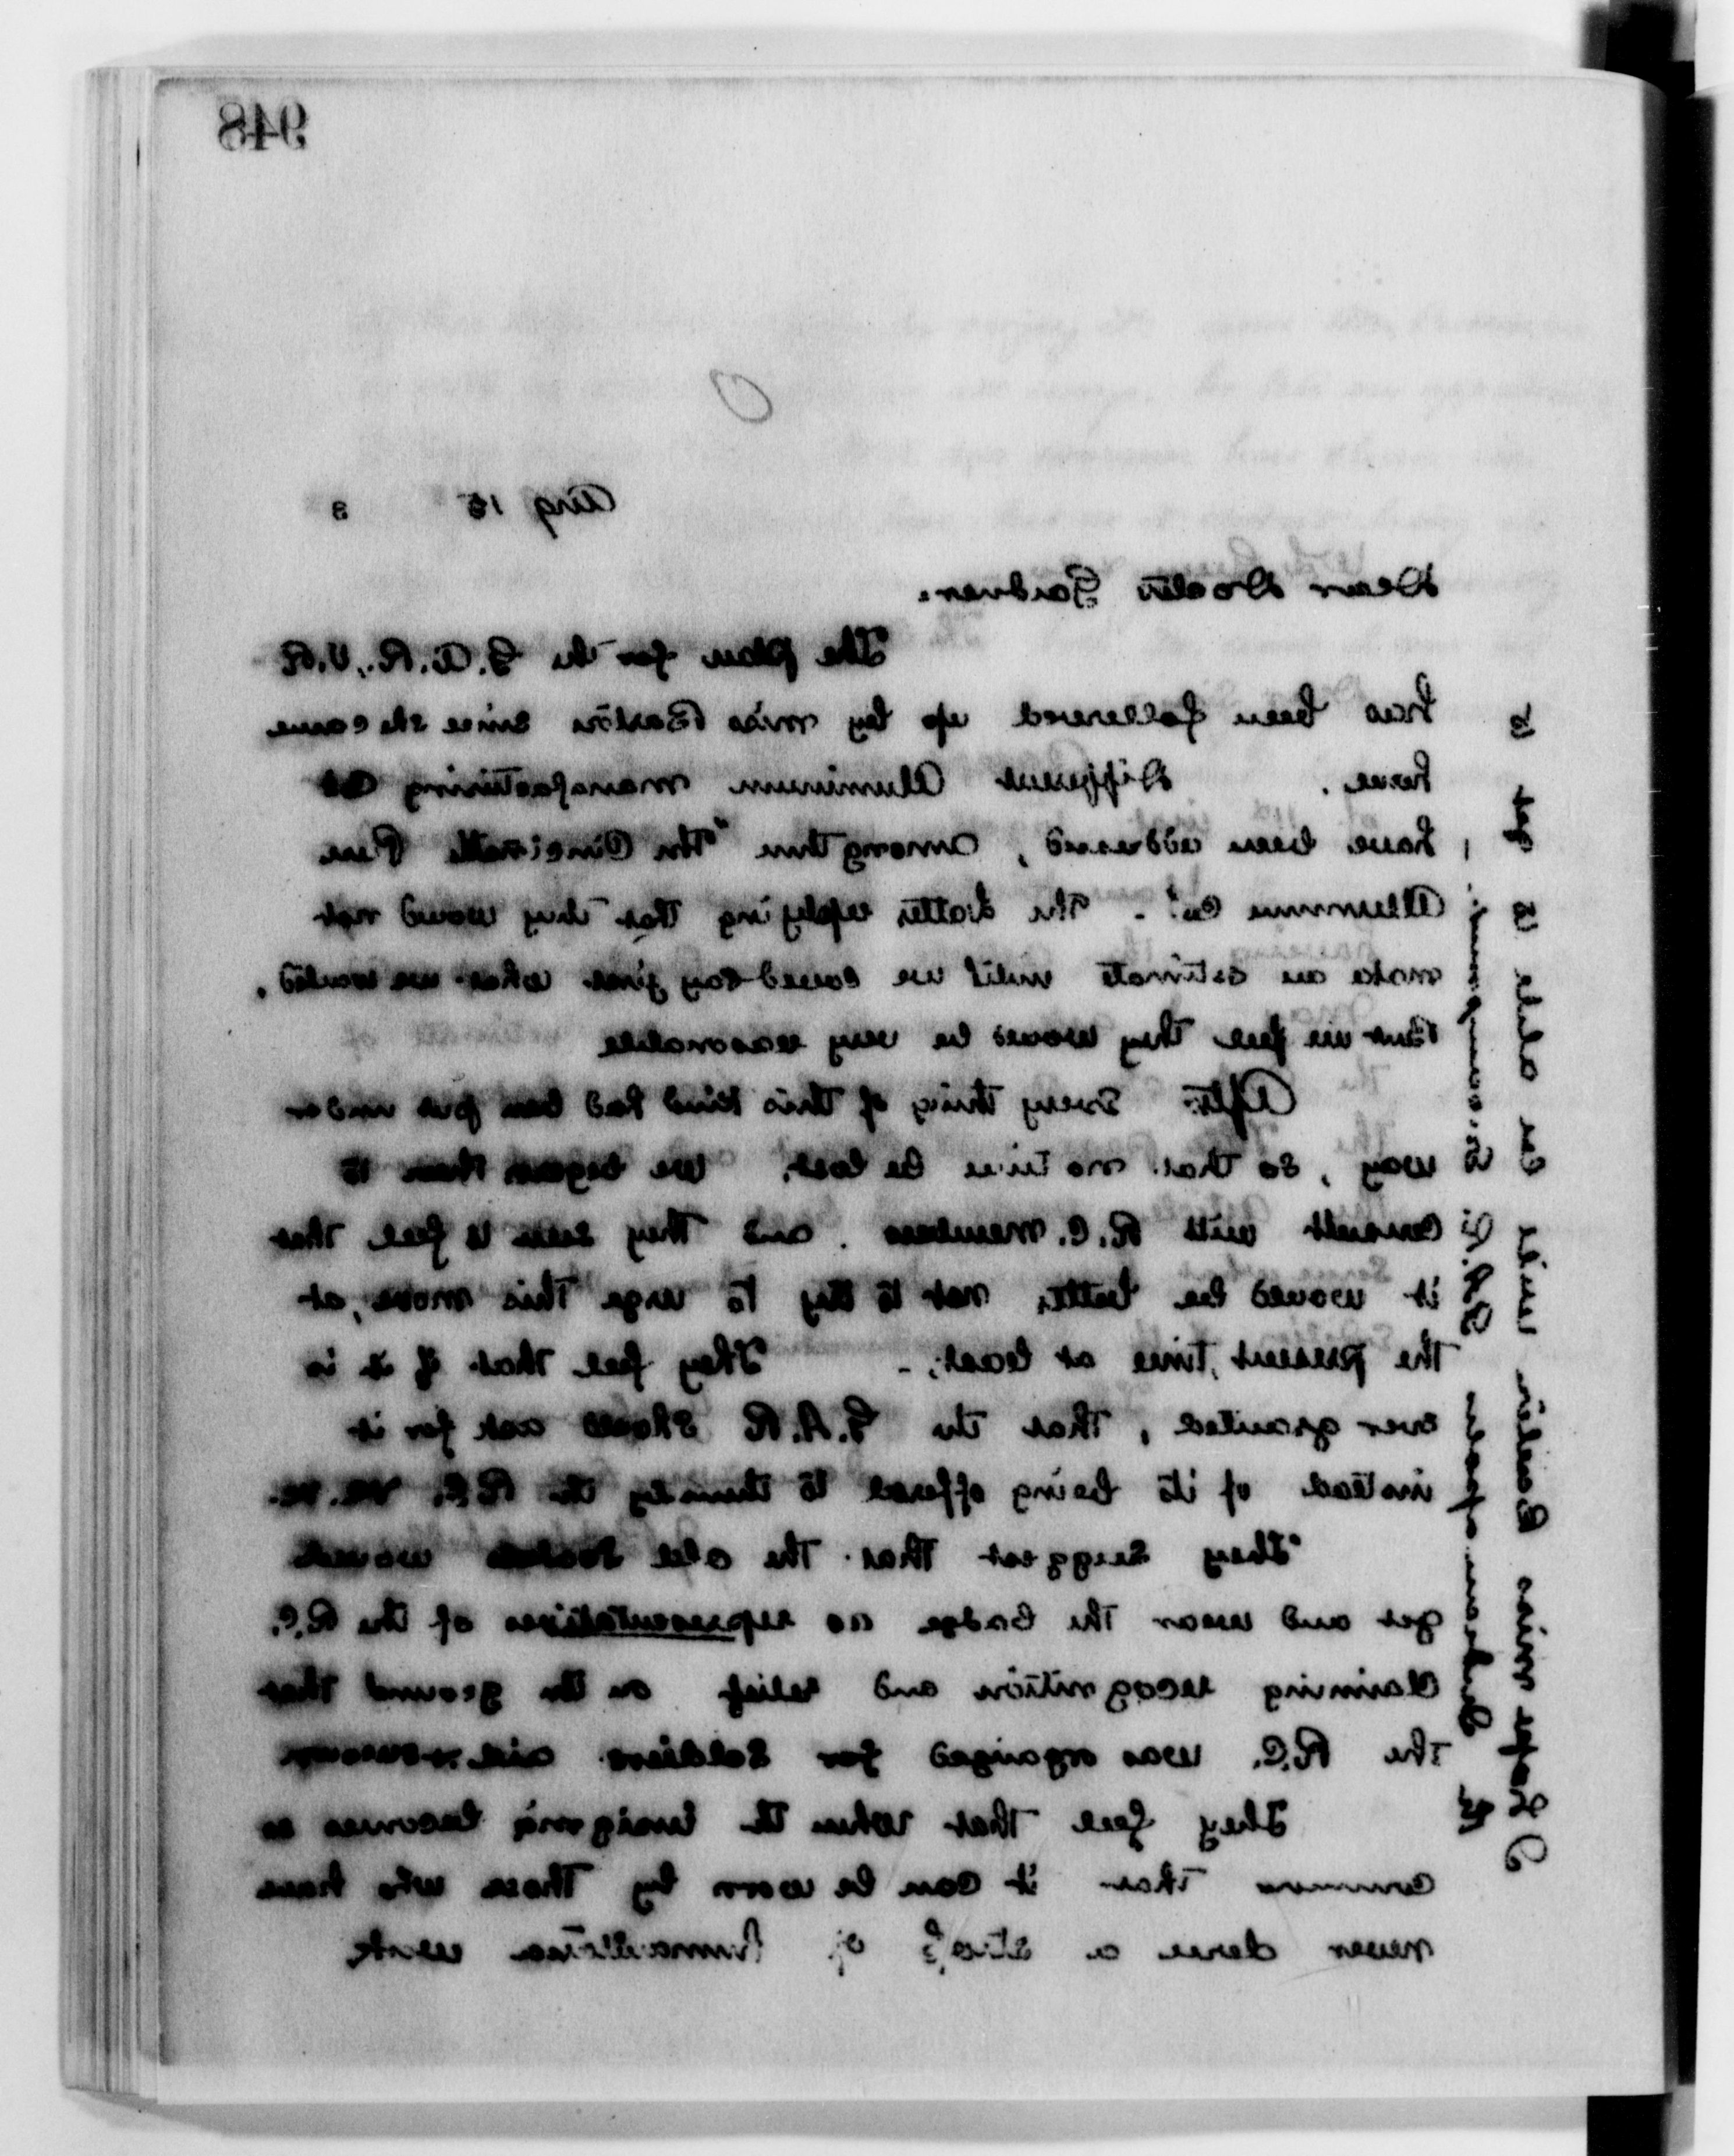 948
Aug 15 8
Dear Doctor Gardner.
The plan for the G.A.R., U.R
has been followed up by miss Barton since she came
here. Different Aluminum manufacturing Co
have been addressed, among them "The Cincinatti Pure
Alumnum Co". The latter replying that they would not
make an estimate until we could say just what we wanted.
But we feel they would be very reasonable
After every thing of this kind had been put under
way, so that no time be lost, we began then to
consult with R.C. members. and they seem to feel that
it would be better, not to try to urge this move, at
the present, time at least. - They feel that if it is
ever granted, that the G.A.R should ask for it
instead of its being offered to them by the R.C.
They suggest that the old would
get and wear the badge as representatives of the R.C.
claiming recognition and relief on the ground that
the R.C. was organized for soldiers
They feel that when the insignia becomes so
common that it can be worn by those who have
never done a of humanitarian work
I hope miss Barton will be able to get to